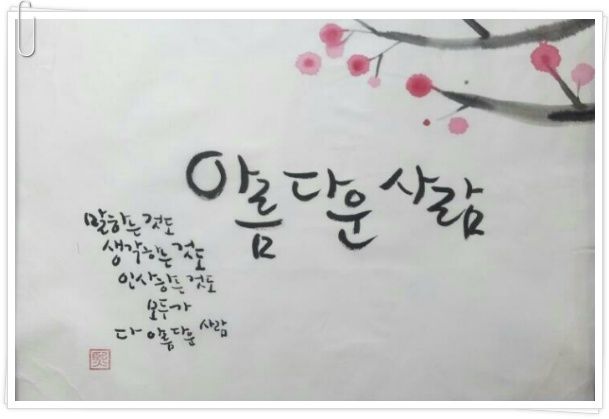 아름다운 사람
말하는 것도
생각하는 것도
인사하는 것도
모두가
다 아름다운 사람